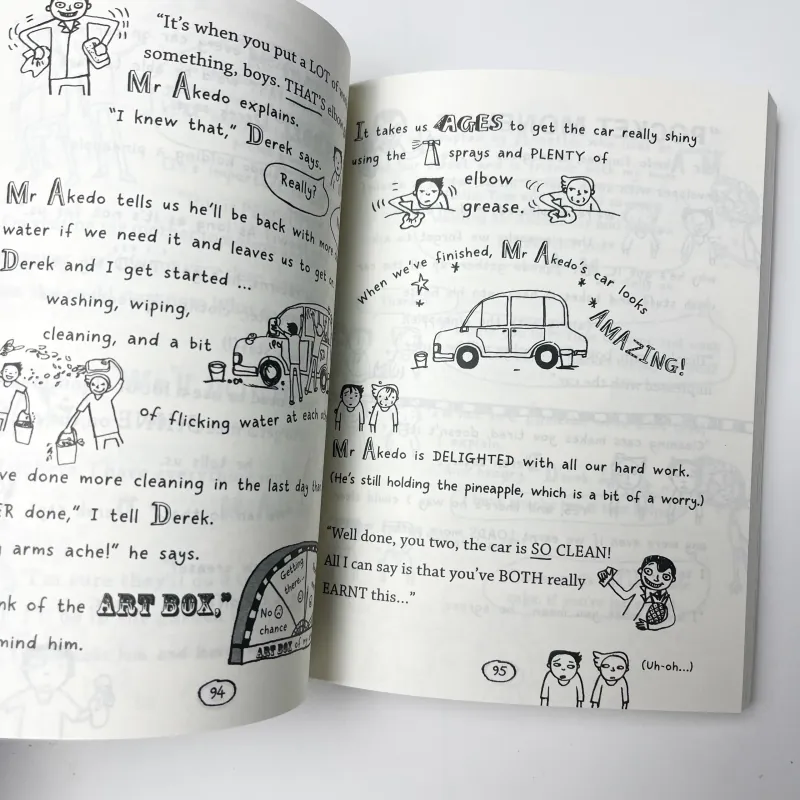 "It's when you put a LOT of
something, boys. THAT'S elbow
Mr Akedo explains.
"I knew that," Derek says.
Really?
Mr Akedo tells us he'll be back with more
water if we need it and leaves us to get on.
Derek and I get started ...
washing, wiping,
cleaning, and a bit
of flicking water at each
ve done more cleaning in the last day than
ER done," I tell Derek.
arms ache!" he says.
nk of the ART BOX,"
mind him.
Getting
there...
No
chance
ART BOX of
94
It takes us AGES to get the car really shiny
using the sprays and PLENTY of
elbow
grease.
When we've finished, Mr Akedo's car looks
AMAZING!
Mr Akedo is DELIGHTED with all our hard work.
(He's still holding the pineapple, which is a bit of a worry.)
"Well done, you two, the car is SO CLEAN!
All I can say is that you've BOTH really
EARNT this..."
(Uh-oh...)
95